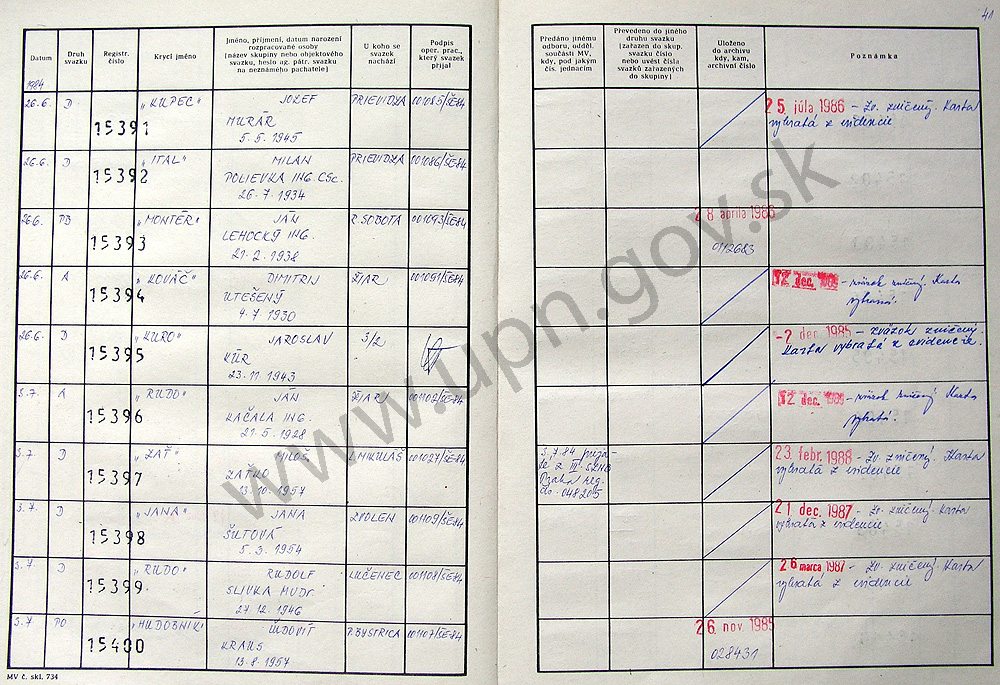 41
Datum
Druh svazku
Registr. číslo
Krycí jméno
Jméno, příjmení, datum narození rozpracované osoby (název skupiny nebo objektového svazku, heslo ag. pátr. svazku na neznámého pachatele)
U koho se svazek nachází
Podpis oper. prac., který svazek přijal
Předáno jinému odboru, odděl. součásti MV, kdy, pod jakým čís. jednacím
Převedeno do jiného druhu svazku (zařazen do skup. svazku číslo nebo uvést čísla svazků zařazených do skupiny)
Uloženo do archivu kdy, kam, archivní číslo
Poznámka
1984
26.6. D 15391 „KUPEC" JOZEF PRIEVIDZA 001085/ŠE-84 25. júla 1986 - Zv. zničený. Karta
MURÁR vybratá z evidencie
5. 5. 1945
26.6. D 15392 „ITAL" MILAN PRIEVIDZA 001086/ŠE-84
POLIEVKA ING. CSc.
26. 7. 1934
26.6. PD 15393 „MONTÉR" JÁN R. SOBOTA 001093/ŠE-84 28. apríla 1986
LEHOCKÝ ING. 0112683
21. 2. 1938
26.6. A 15394 „KOVÁČ" DIMITRIJ ŽIAR 001091/ŠE-84 12. dec. 1989 - zväzok zničený. Karta
UTEŠENÝ vybratá.
4. 7. 1930
26.6. D 15395 „KURO" JAROSLAV 3/2 -2. dec. 1985 - zväzok zničený.
KÚR Karta vybratá z evidencie.
23. 11. 1943
3.7. A 15396 „RUDO" JÁN ŽIAR 001102/ŠE-84 12. dec. 1989 - zväzok zničený. Karta
KAČALA ING. vybratá.
21. 5. 1928
3.7 D 15397 „ZAŤ" MILOŠ L. MIKULÁŠ 001027/ŠE-84 3.7.84 Praha reg. čís. 048205 23. febr. 1988 - Zv. zničený. Karta
ZAŤKO vybratá z evidencie
13. 10. 1957
3.7. D 15398 „JANA" JANA ZVOLEN 001109/ŠE-84 21. dec. 1987 - Zv. zničený. Karta
ŠUTOVÁ vybratá z evidencie
5. 3. 1954
3.7 D 15399 „RUDO" RUDOLF LUČENEC 001108/ŠE-84 26. marca 1987 - Zv. zničený. Karta
SLIVKA MUDr. vybratá z evidencie
27. 12. 1946
3.7 PO 15400 „HUDOBNÍK" ĽUDOVÍT P. BYSTRICA 001107/ŠE-84 26. nov. 1985
KRAUS 028431
13. 8. 1957
MV č. skl. 734
www.upn.gov.sk